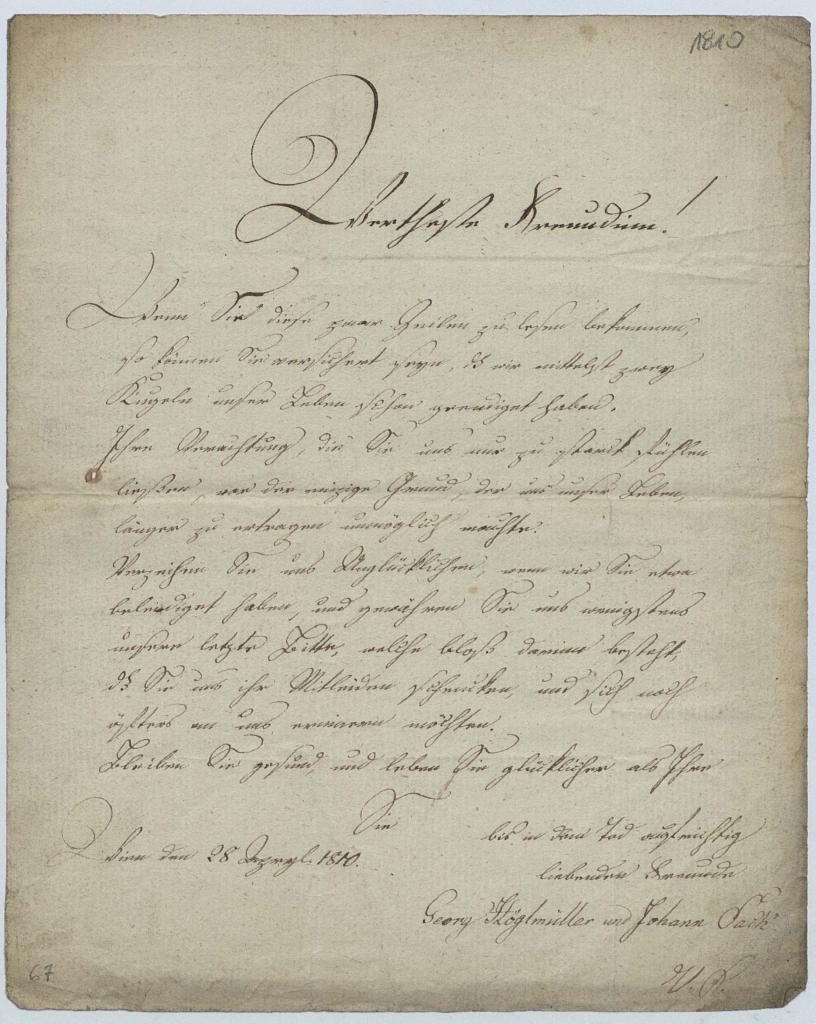 1810
Wertheste Freundinn!
Wenn Sie diese paar Zeilen zu lesen bekommen,
so können Sie versichert seyn, dß wir mittelst zwey
Kugeln unser Leben schon geendiget haben.
Ihre Verachtung, die Sie uns nur zu starck fühlen
ließen, war der einzige Grund, der uns unser Leben,
länger zu ertragen unmöglich machte.
Verzeihen Sie uns Unglücklichen, wenn wir Sie etwa
beleidiget haben, und gewähren Sie uns wenigstens
unsere letzte Bitte, welche bloß darinn besteht,
dß Sie uns ihr Mitleiden schencken, und sich noch
öfters an uns erinnern möchten.
Bleiben Sie gesund, und leben Sie glücklicher als Ihre
Sie
bis in den Tod aufrichtig
Wien den 28 Apryl. 1810.
liebenden Freunde
Georg Köglmüller und Johann
67